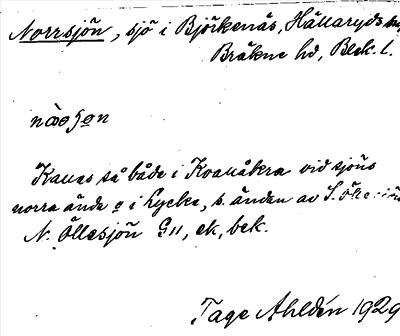 Norrsjön, sjö i Björkenäs, Hällaryds
Bräkne hd, Blek. l.
Kallas så både i Kvallåkra vid sjöns
norra ände o i Lycke, s. änden av S. Öllesjön
N. Öllesjön G11, ek, bek.
Tage Ahldén 1929